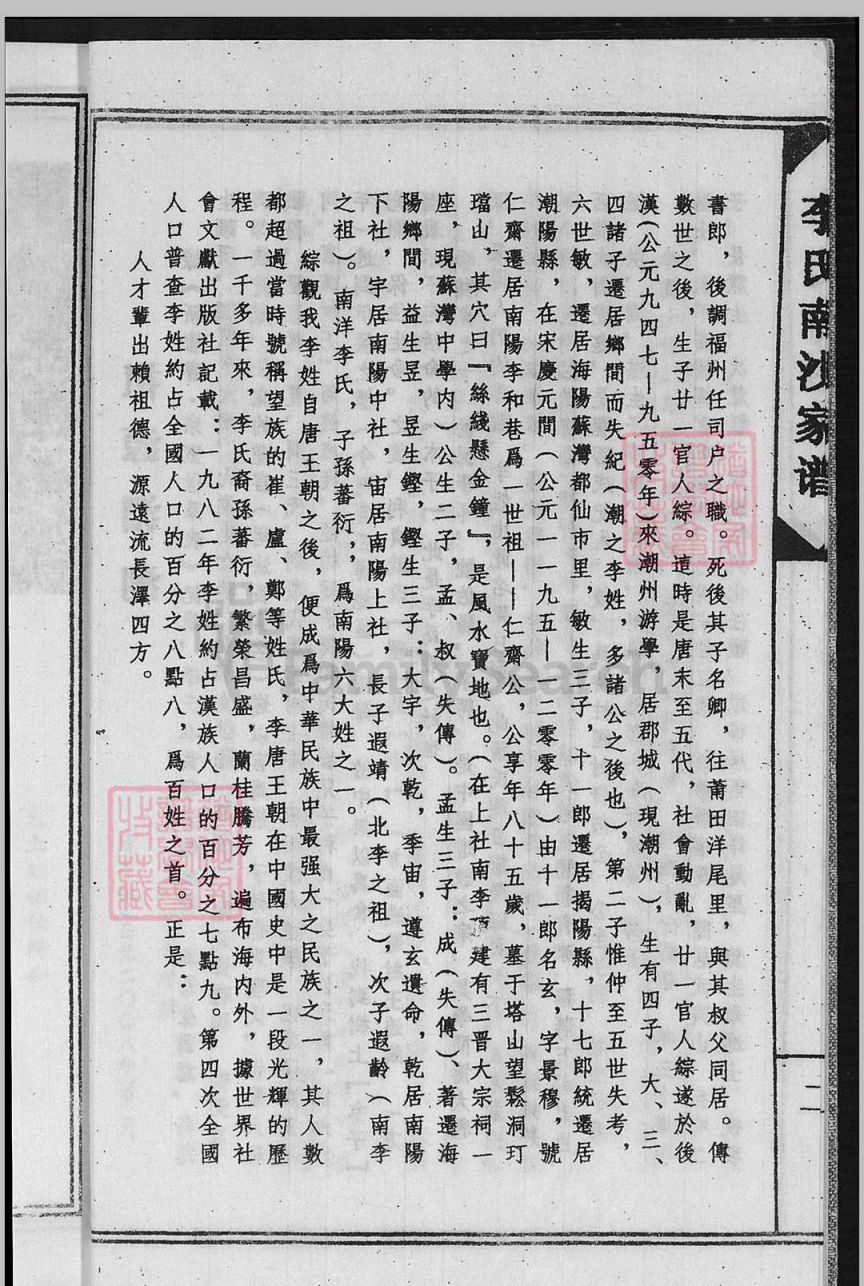 李氏南沙家谱
二
書郎，後調福州任司户之職。死後其子名卿，往莆田洋尾里，與其叔父同居。傳
數世之後，生子廿一官人綜。這時是唐末至五代，社會動亂，廿一官人綜遂於後
漢（公元九四七—九五零年）來潮州游學，居郡城（現潮州），生有四子，大、三、
四諸子遷居鄉間而失紀（潮之李姓，多諸公之後也），第二子惟仲至五世失考，
六世敏，遷居海陽蘇灣都仙市里，敏生三子，十一郎遷居揭陽縣，十七郎統遷居
潮陽縣，在宋慶元間（公元一一九五—一二零零年）由十一郎名玄，字景穆，號
仁齋遷居南陽李和巷爲一世祖——仁齋公，公享年八十五歲，墓于塔山望鬆洞玎
璫山，其穴曰『絲綫懸金鐘』，是風水寶地也。（在上社南李頂建有三晋大宗祠一
座，現蘇灣中學内）公生二子，孟、叔（失傳）。孟生三子：成（失傳）、著遷海
陽鄉間，益生昱，昱生鏗，鏗生三子：大宇，次乾，季宙，遵玄遺命，乾居南陽
下社，宇居南陽中社，宙居南陽上社，長子遐靖（北李之祖），次子遐齡（南李
之祖）。南洋李氏，子孫蕃衍，，爲南陽六大姓之一。
綜觀我李姓自唐王朝之後，便成爲中華民族中最强大之民族之一，其人數
都超過當時號稱望族的崔、盧、鄭等姓氏，李唐王朝在中國史中是一段光輝的歷
程。一千多年來，李氏裔孫蕃衍，繁榮昌盛，蘭桂騰芳，遍布海内外，據世界社
會文獻出版社記載：一九八二年李姓約占漢族人口的百分之七點九。第四次全國
人口普查李姓約占全國人口的百分之八點八，爲百姓之首。正是：
人才輩出賴祖德，源遠流長澤四方。
FamilySearch
收藏